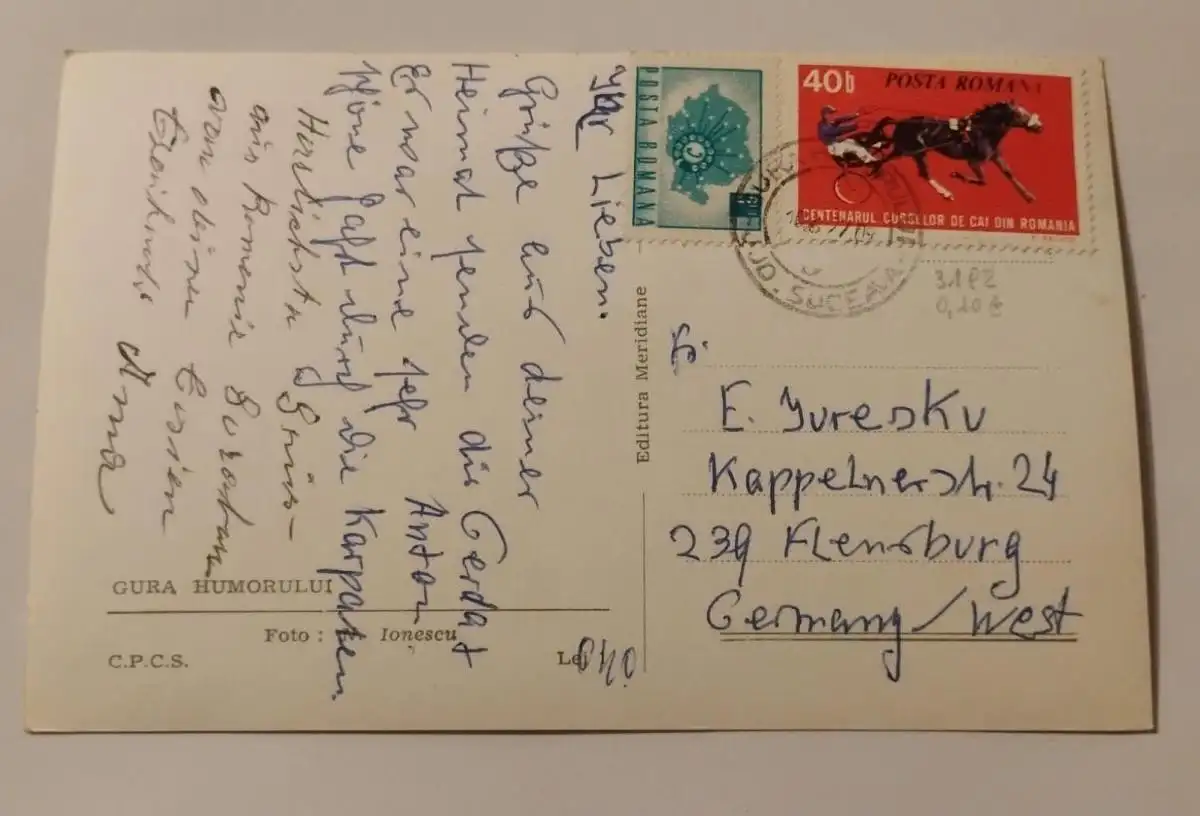 Ihr Lieben.
Grüße aus deiner
Heimat senden dir Gerda +
Anton
Er war eine sehr
schöne Fahrt durch die Karpaten.
Herzlichste Grüsse
aus Rumänien
von deiner
Anna
GURA HUMORULUI
Foto : Ionescu
C.P.C.S.
Lei
Editura Meridiane
POSTA ROMANA
40b POSTA ROMANA
CENTENARUL CURSELOR DE CAI DIN ROMANIA
SUCEAVA
0,20
E. Juresku
Kappelnerstr. 24
239 Flensburg
Germany/West